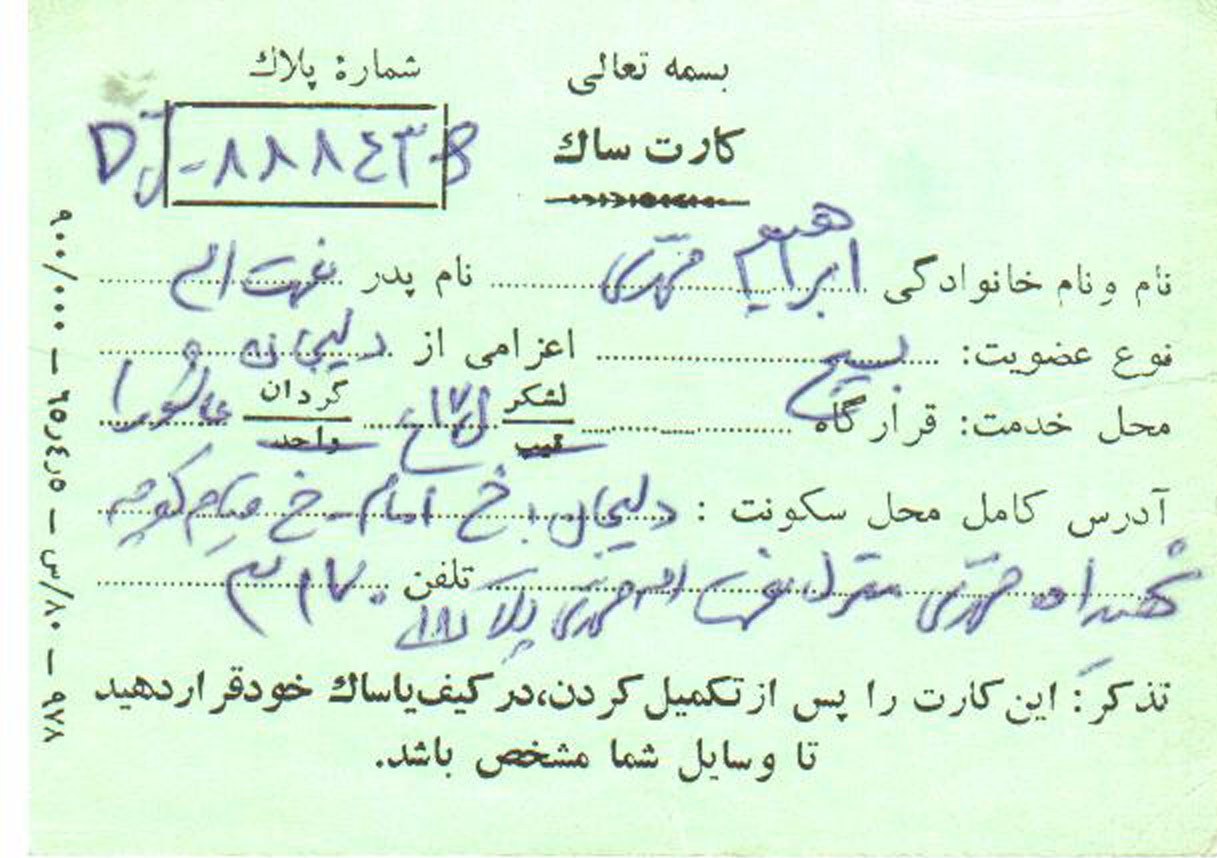 بسمه تعالی
شمارهٔ پلاك
کارت ساك
DJ-۸۸۸٤۳-B
نام و نام خانوادگی ابراهیم مهری نام پدر نعمت اله
نوع عضویت: بسیج اعزامی از دلیجان
محل خدمت: قرارگاه لشکر تیپ ۱۷ گردان واحد عاشورا
آدرس کامل محل سکونت : دلیجان خ امام - خ قیام کوچه
شهیدان مهری منزل نعمت اله مهری پلاک تلفن ۳۱۷۰
تذکر: این کارت را پس از تکمیل کردن، در کیف یا ساك خود قرار دهید
تا وسایل شما مشخص باشد.
۹۷۸ – ۸۰/س – ٦٥ر٤ر٥ – ۹۰۰/۰۰۰